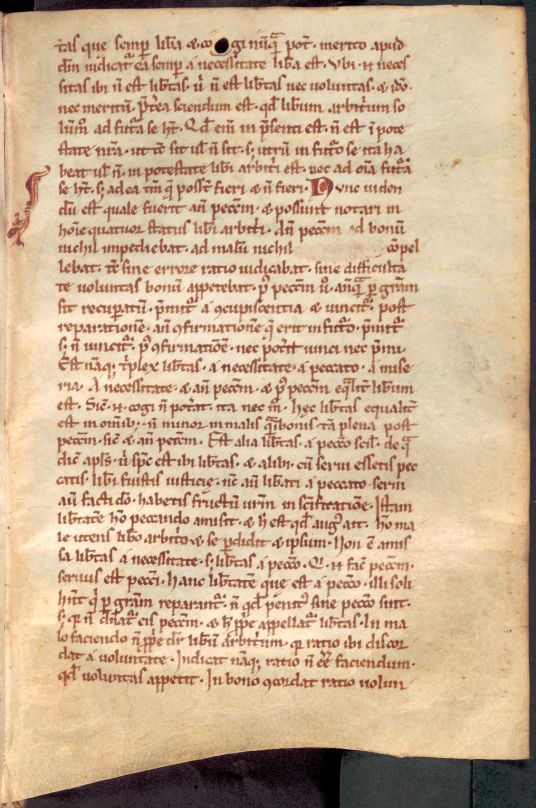 tas que semp̄ lib̄a ⁊ cogi nūq̄ pot̄· merito apud
dm̄ iudicat̄ ea semp̄ a necessitate lib̄a est· Vbi ⁊ neces
sitas ibi n̄ est lib̄tas· uƚ n̄ est lib̄tas nec voluntas· ⁊ ido
nec meritū· Pret̄ea sciendum est· qd̄ libum̄ arbitrium so
lum̄ ad futa̅ se ht̄· Qd̄ eni̅ in p̄senti est· n̄ est i̅ pote
state nr̄a· ut tc̄ sit uƚ n̄ sit· s; utrū in futo̅ se ita ha
beat uƚ n̄· in potestate libi̅ arbitr̄i est· nec ad om̄a futa̅
se ht̄· s; ad ea tm̄ q̄ poss̄t fieri ⁊ n̄ fieri· Nunc uiden
dū est quale fuerit an̄ pecc̄m· ⁊ possunt notari in
hoīe quatuor status libi̅ arbitr̄i· An̄ pecc̄m ad bonū
nichil impediebat· ad malū nichil cōpel
lebat· tc̄ sine errore ratio iudicabat· sine difficulta
te voluntas bonū appetebat· p̄ pecc̄m ū· anq̄ p gr̄am
sit recuperatū· p̄mit̄ a ꝯcupiscentia ⁊ uincit̄· post
reparationē· an̄ ꝯfirmationē q̄ erit in futo̅· p̄mit̄
s; n̄ uincit̄· p̄ ꝯfirmationē· nec pot̄it uinci nec p̄mi·
Est naq; t̄plex lib̄tas· a necessitate· a peccato· a mise
ria· A necessitate· ⁊ an̄ pecc̄m· ⁊ p̄ pecc̄m eq̄lit̄ libum̄
est· Sic̄ ⁊ cogi n̄ pot̄at· ita nec m̄· hec lib̄tas equalit̄
est in omīb;· n̄ minor in malis q̄ in bonis· ta̅ plena post
pecc̄m· sic̄ ⁊ an̄ pecc̄m· Est alia lib̄tas· a pecc̄o sciƚ· de q̄
dic̄ apl̄s· ū sp̄c est ibi lib̄tas· ⁊ alibi· cū serui essetis pec
catis· libi̅ fuistis iusticie· nc̄ au̅ libati̅ a peccato· serui
au̅ facti dō· habetis fructū urm̄ in scīficatione· Istam
lib̄tate̅ ho̅ peccando amisit· ⁊ h̄ est qd̄ aug; ait· ho̅ ma
le utens libo̅ arbitr̄o ⁊ se p̄didit ⁊ ipsum· Non ē amis
sa lib̄tas a necessitate· s; lib̄tas a pecc̄o· Q̄ ⁊ fac̄ pecc̄m·
seruus est pecc̄i· hanc lib̄tatē que est a pecc̄o· illi soli
hn̄t q̄ p gr̄am reparant̄· n̄ qd̄ penit̄ sine pecc̄o sint·
s; q̄ n̄ dn̄at̄ eis pecc̄m· ⁊ h̄ p̄pe appellat̄ lib̄tas· In ma
lo faciendo n̄ p̄pe dr̄ libū arbitr̄ium· q̄ ratio ibi discor
dat a uoluntate· Iudicat naq; ratio n̄ eē faciendum·
qd̄ voluntas appetit· In bono ꝯcordat ratio uolun